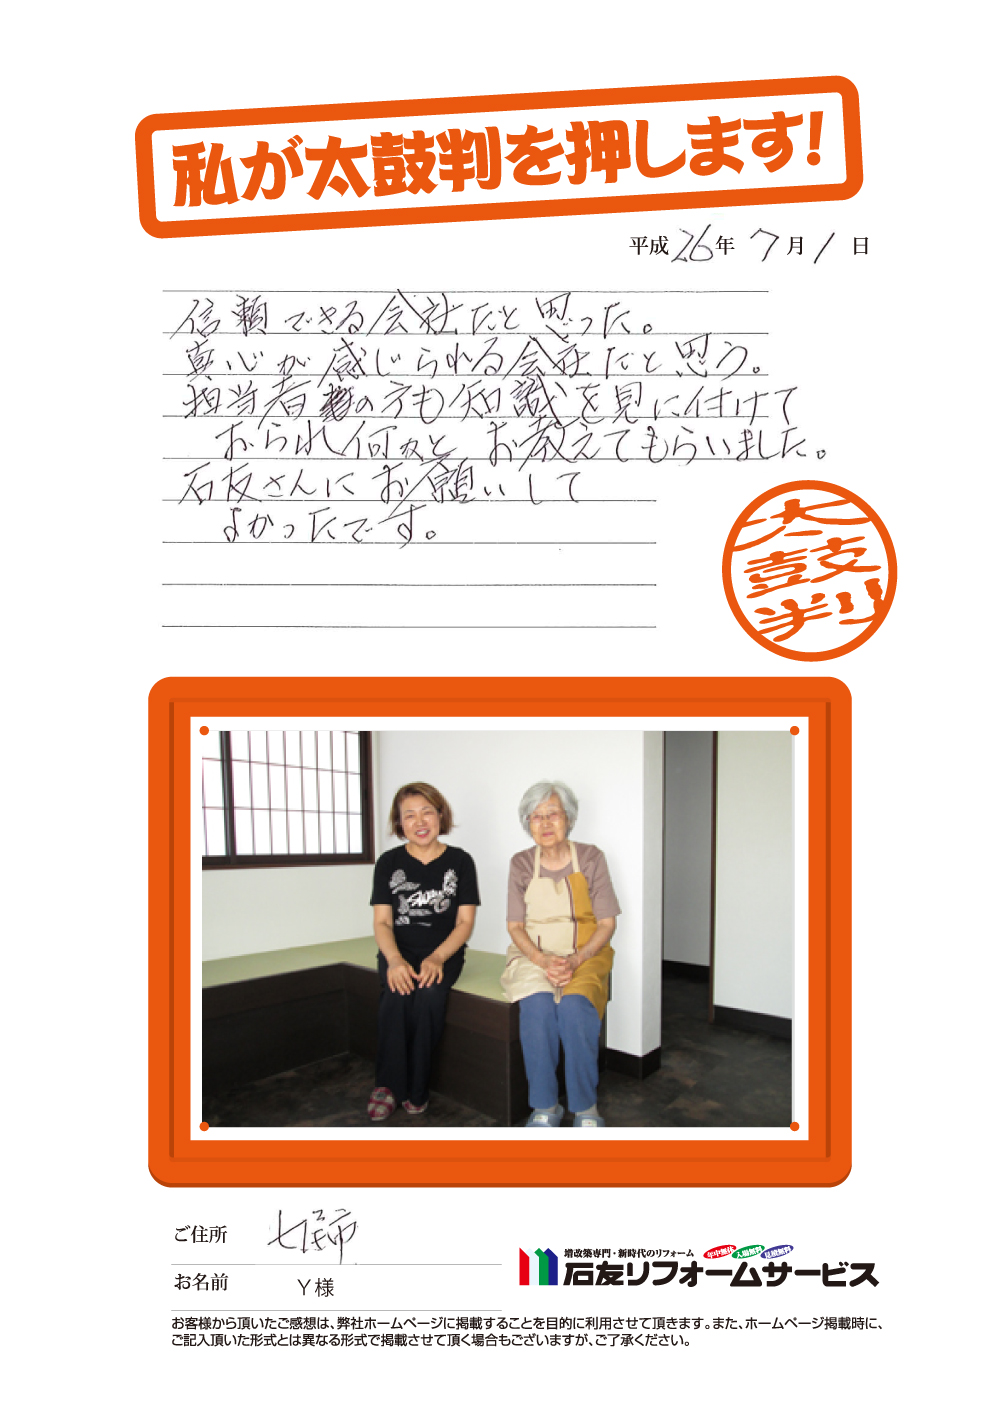 私が太鼓判を押します!
平成26年 7月 1日
信頼できる会社だと思った。
真心が感じられる会社だと思う。
担当者の方も知識を見に付けて
おられ何かと お教えてもらいました。
石友さんに お願いして
よかったです。
太
鼓
判
ご住所 七尾市
お名前 Y様
増改築専門・新時代のリフォーム 年中無休 入場無料 見積無料
石友リフォームサービス
お客様から頂いたご感想は、弊社ホームページに掲載することを目的に利用させて頂きます。また、ホームページ掲載時に、
ご記入頂いた形式とは異なる形式で掲載させて頂く場合もございますが、ご了承ください。